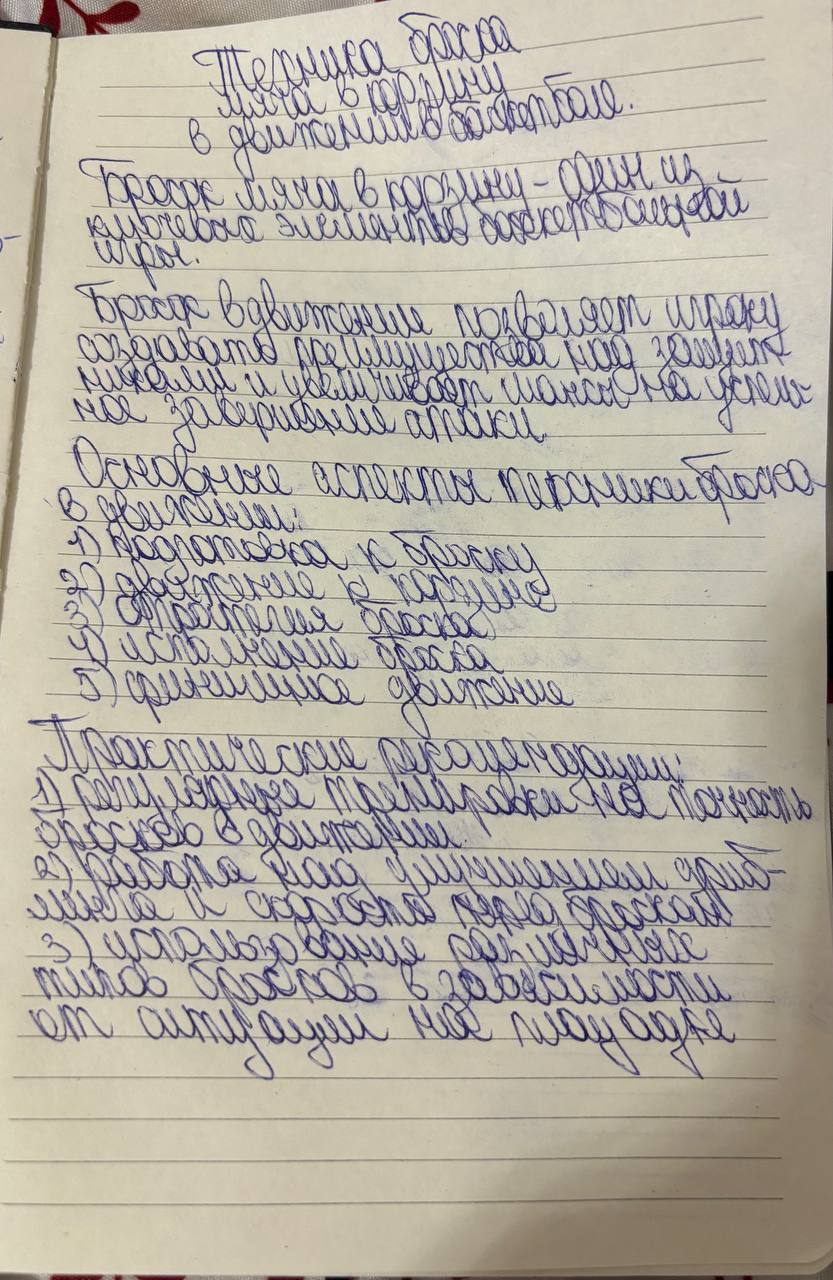 Техника броска
мяча в корзину
в движении в баскетболе.
Бросок мяча в корзину - один из
ключевых элементов баскетбольной
игры.
Бросок в движении позволяет игроку
создавать преимущества над защит-
никами и увеличивает шансы на успеш-
ное завершение атаки.
Основные аспекты техники броска
в движении:
1) подготовка к броску
2) движение к корзине
3) стратегия броска
4) исполнение броска
5) финишное движение
Практические рекомендации:
1) регулярные тренировки на точность
бросков в движении.
2) работа над улучшением дриб-
линга и скорости перед броском
3) использование различных
типов бросков в зависимости
от ситуации на площадке